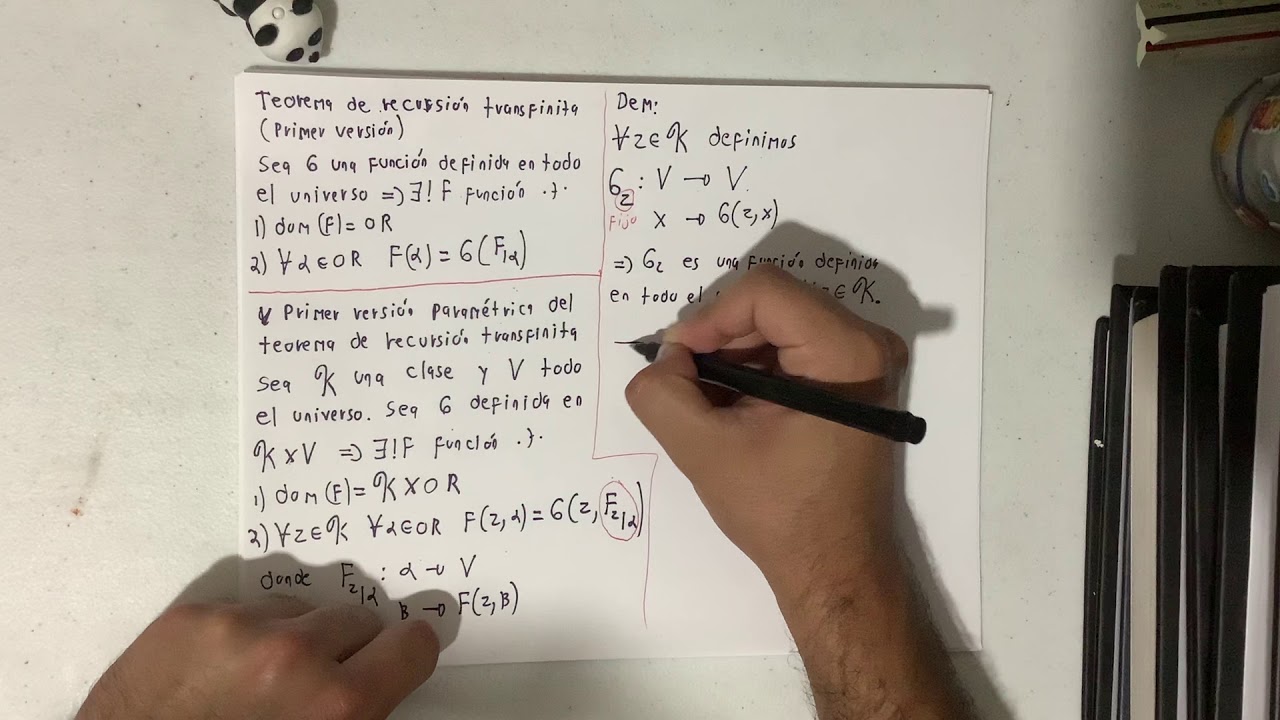 Teorema de recursión transfinita
(Primer versión)
Sea G una función definida en todo
el universo => ∃! F función .}.
1) dom(F)= OR
2) ∀ α ∈ OR F(α) = G(F|α)
Primer versión Paramétrica del
teorema de recursión transfinita
Sea K una clase y V todo
el universo. Sea G definida en
K x V => ∃!F función .}.
1) dom(F)= K X OR
2) ∀z∈K ∀α∈OR F(z,α) = G(z, Fz|α)
donde Fz|α : α → V
B → F(z,B)
Dem:
∀z∈K definimos
Gz : V → V
Fijo x → G(z,x)
=) Gz es una función definida
en todo el ∈ K.